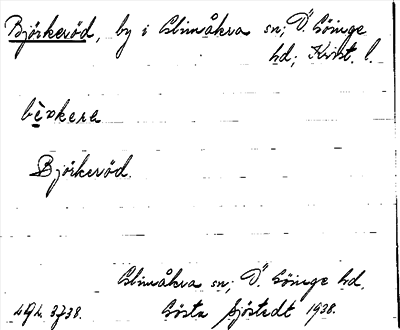 Björkeröd, by i Glimåkra sn; Ö. Göinge
hd; Krist. l.
Björkeröd.
Glimåkra sn; Ö. Göinge hd.
Gösta Sjöstedt 1938.